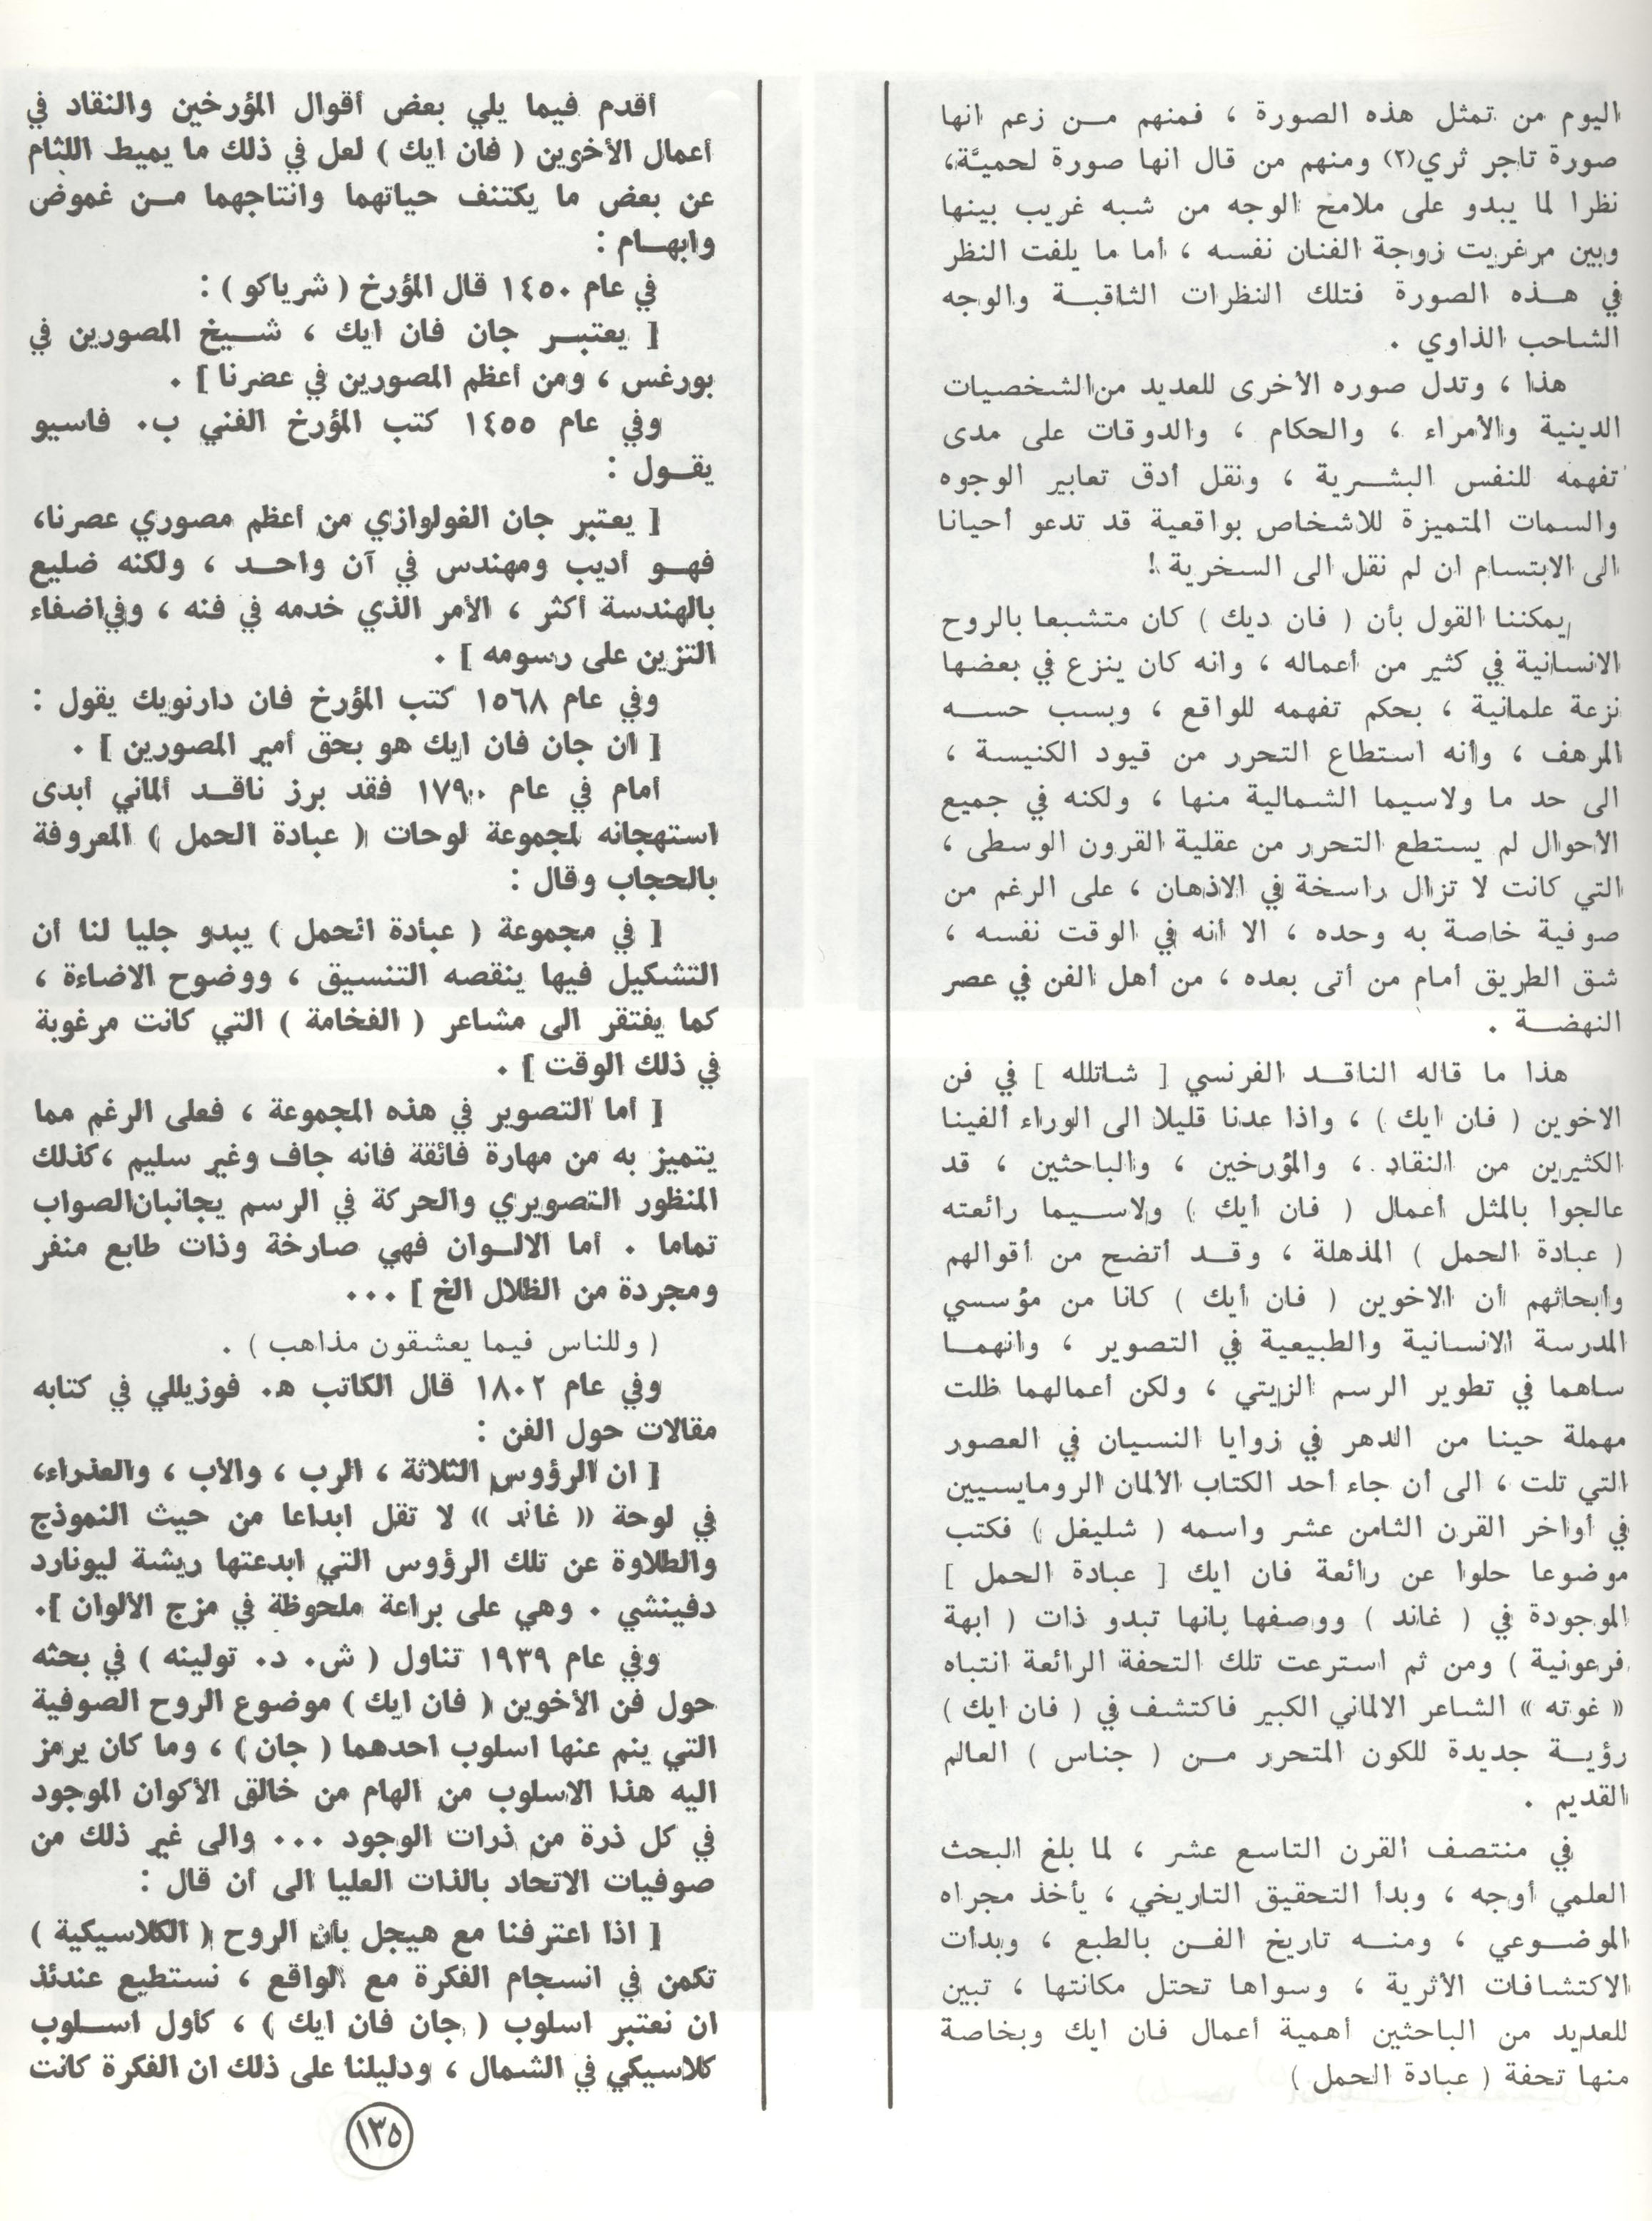 اليوم من تمثل هذه الصورة ، فمنهم مــن زعم انها
صورة تاجر ثري(٢) ومنهم من قال انها صورة لحميَّة،
نظرا لما يبدو على ملامح الوجه من شبه غريب بينها
وبين مرغريت زوجة الفنان نفسه ، أما ما يلفت النظر
في هــذه الصورة فتلك النظرات الثاقبــة والوجه
الشاحب الذاوي .
هذا ، وتدل صوره الأخرى للعديد من الشخصيات
الدينية والأمراء ، والحكام ، والدوقات على مدى
تفهمه للنفس البشــرية ، ونقل أدق تعابير الوجوه
والسمات المتميزة للاشخاص بواقعية قد تدعو أحيانا
الى الابتسام ان لم نقل الى السخرية !
يمكننا القول بأن ( فان ديك ) كان متشبعا بالروح
الانسانية في كثير من أعماله ، وانه كان ينزع في بعضها
نزعة علمانية ، بحكم تفهمه للواقع ، وبسب حســه
المرهف ، وأنه استطاع التحرر من قيود الكنيسة ،
الى حد ما ولاسيما الشمالية منها ، ولكنه في جميع
الأحوال لم يستطع التحرر من عقلية القرون الوسطى ،
التي كانت لا تزال راسخة في الاذهان ، على الرغم من
صوفية خاصة به وحده ، الا أنه في الوقت نفسه ،
شق الطريق أمام من أتى بعده ، من أهل الفن في عصر
النهضــة .
هذا ما قاله الناقــد الفرنسي [ شاتلله ] في فن
الاخوين ( فان ايك ) ، واذا عدنا قليلا الى الوراء ألفينا
الكثيرين من النقاد ، والمؤرخين ، والباحثين ، قد
عالجوا بالمثل أعمال ( فان أيك ) ولاســيما رائعته
( عبادة الحمل ) المذهلة ، وقــد أتضح من أقوالهم
وأبحاثهم أن الاخوين ( فان أيك ) كانا من مؤسسي
المدرسة الانسانية والطبيعية في التصوير ، وانهمــا
ساهما في تطوير الرسم الزيتي ، ولكن أعمالهما ظلت
مهملة حينا من الدهر في زوايا النسيان في العصور
التي تلت ، الى أن جاء أحد الكتاب الألمان الرومايسيين
في أواخر القرن الثامن عشر واسمه ( شليغل ) فكتب
موضوعا حلوا عن رائعة فان ايك [ عبادة الحمل ]
الموجودة في ( غاند ) ووصفها بانها تبدو ذات ( ابهة
فرعونية ) ومن ثم استرعت تلك التحفة الرائعة انتباه
« غوته » الشاعر الالماني الكبير فاكتشف في ( فان ايك )
رؤيــة جديدة للكون المتحرر مــن ( جناس ) العالم
القديم .
في منتصف القرن التاسع عشر ، لما بلغ البحث
العلمي أوجه ، وبدأ التحقيق التاريخي ، يأخذ مجراه
الموضــوعي ، ومنــه تاريخ الفــن بالطبع ، وبدأت
الاكتشافات الأثرية ، وسواها تحتل مكانتها ، تبين
للعديد من الباحثين أهمية أعمال فان ايك وبخاصة
منها تحفة ( عبادة الحمل )
أقدم فيما يلي بعض أقوال المؤرخين والنقاد في
أعمال الأخوين ( فان ايك ) لعل في ذلك ما يميط اللثام
عن بعض ما يكتنف حياتهما وانتاجهما مــن غموض
وابهــام :
في عام ١٤٥٠ قال المؤرخ ( شرياكو ) :
[ يعتبــر جان فان ايك ، شــيخ المصورين في
بورغس ، ومن أعظم المصورين في عضرنا ] .
وفي عام ١٤٥٥ كتب المؤرخ الفني ب. فاسيو
يقــول :
[ يعتبر جان الغولوازي من أعظم مصوري عصرنا،
فهــو أديب ومهندس في آن واحــد ، ولكنه ضليع
بالهندسة أكثر ، الأمر الذي خدمه في فنه ، وفي اضفاء
التزين على رسومه ] .
وفي عام ١٥٦٨ كتب المؤرخ فان دارنويك يقول :
[ ان جان فان ايك هو بحق أمير المصورين ] .
أمام في عام ١٧٩٠ فقد برز ناقــد ألماني أبدى
استهجانه لمجموعة لوحات ( عبادة الحمل ) المعروفة
بالحجاب وقال :
[ في مجموعة ( عبادة الحمل ) يبدو جليا لنا أن
التشكيل فيها ينقصه التنسيق ، ووضوح الاضاءة ،
كما يفتقر الى مشاعر ( الفخامة ) التي كانت مرغوبة
في ذلك الوقت ] .
[ أما التصوير في هذه المجموعة ، فعلى الرغم مما
يتميز به من مهارة فائقة فانه جاف وغير سليم ، كذلك
المنظور التصويري والحركة في الرسم يجانبان الصواب
تماما . أما الالــوان فهي صارخة وذات طابع منفر
ومجردة من الظلال الخ ] ...
( وللناس فيما يعشقون مذاهب ) .
وفي عام ١٨٠٢ قال الكاتب هـ. فوزيللي في كتابه
مقالات حول الفن :
[ ان الرؤوس الثلاثة ، الرب ، والأب ، والعذراء،
في لوحة « غاند » لا تقل ابداعا من حيث النموذج
والطلاوة عن تلك الرؤوس التي ابدعتها ريشة ليونارد
دفينشي . وهي على براعة ملحوظة في مزج الألوان ].
وفي عام ١٩٣٩ تناول ( ش. د. تولينه ) في بحثه
حول فن الأخوين ( فان ايك ) موضوع الروح الصوفية
التي ينم عنها اسلوب احدهما ( جان ) ، وما كان يرمز
اليه هذا الاسلوب من الهام من خالق الأكوان الموجود
في كل ذرة من ذرات الوجود ... والى غير ذلك من
صوفيات الاتحاد بالذات العليا الى أن قال :
[ اذا اعترفنا مع هيجل بأن الروح ( الكلاسيكية )
تكمن في انسجام الفكرة مع الواقع ، نستطيع عندئذ
ان نعتبر اسلوب ( جان فان ايك ) ، كأول اســلوب
كلاسيكي في الشمال ، ودليلنا على ذلك ان الفكرة كانت
١٣٥